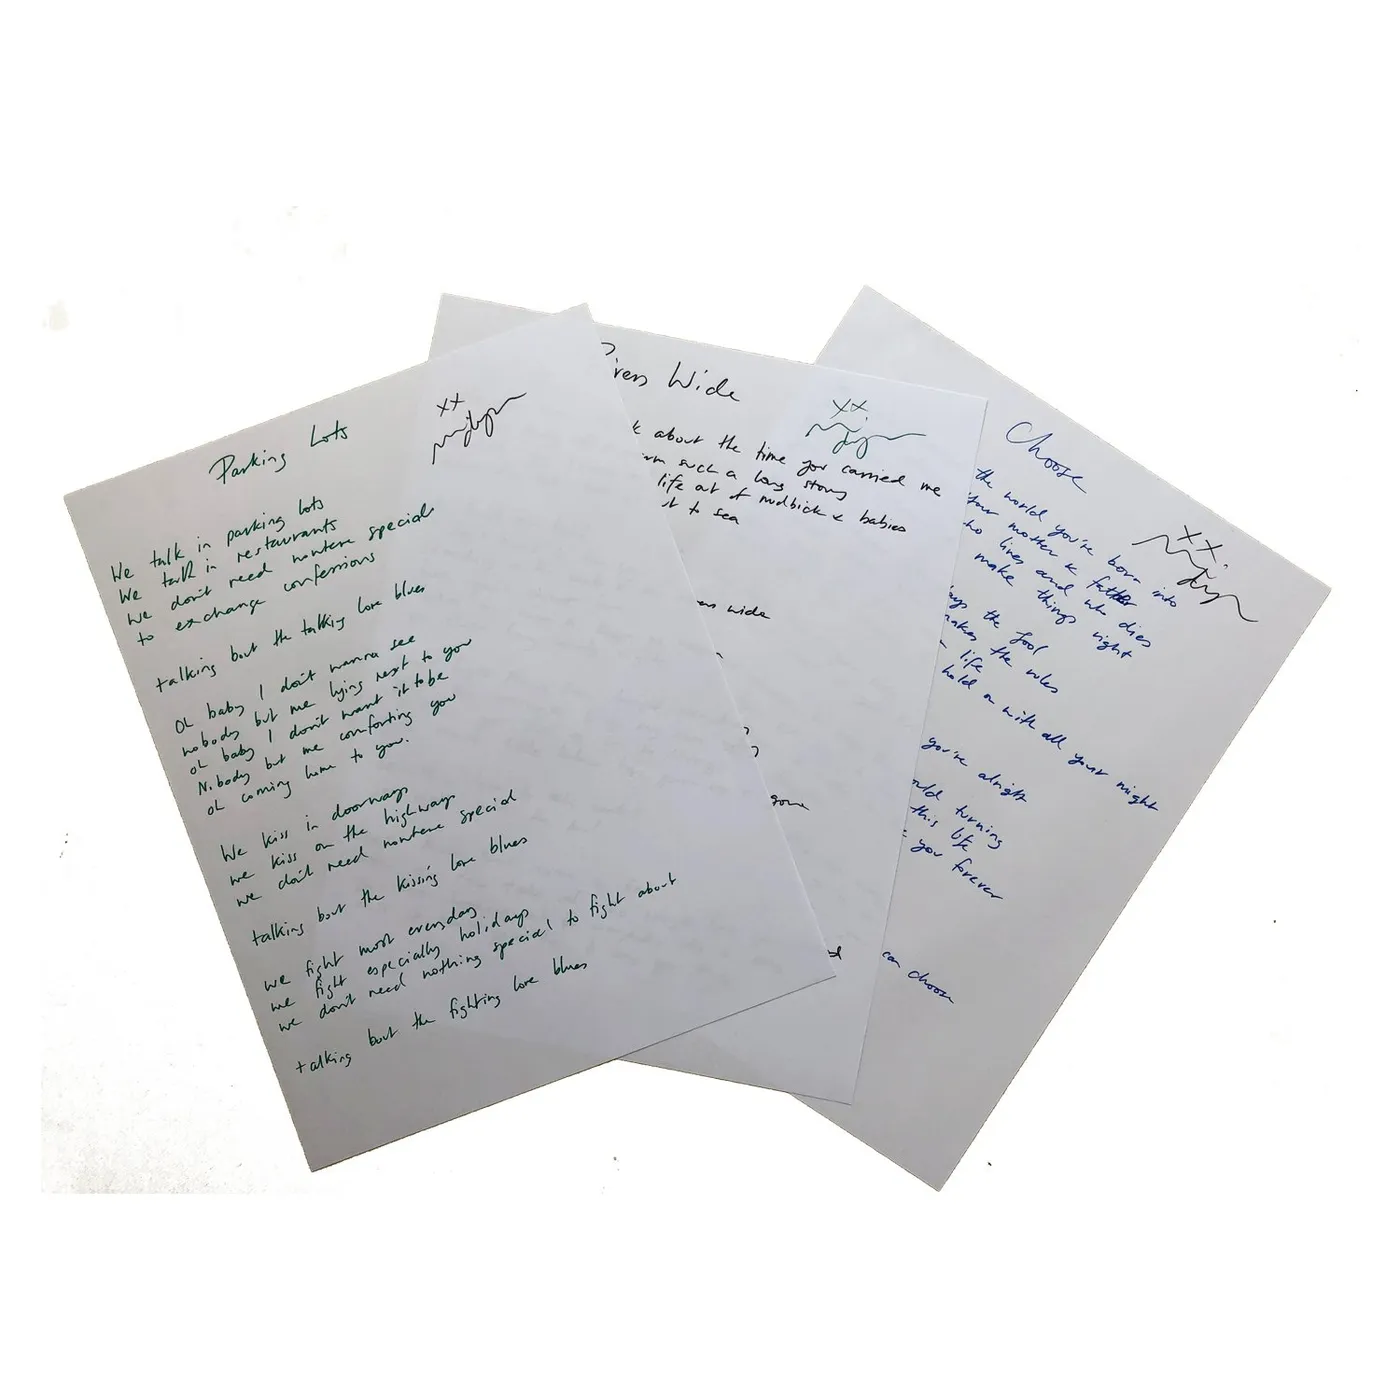 Parking Lots
xx
We talk in parking lots
We talk in restaurants
we don't need nowhere special
to exchange confessions
talking bout the talking love blues
oh baby I don't wanna see
nobody but me lying next to you
oh baby I don't want it to be
Nobody but me comforting you
oh coming home to you.
We kiss in doorways
we kiss on the highways
we don't need nowhere special
talking bout the kissing love blues
we fight most everyday
we fight especially holidays
we don't need nothing special to fight about
talking bout the fighting love blues
Wide
xx
about the time you carried me
such a long story
life out of mudbick & babies
to sea
wide
gone
Choose
xx
the world you're born into
your mother & father
who lives and who dies
make things right
the fool
makes the rules
life
hold on with all your might
you're alright
turning
this life
you forever
can choose